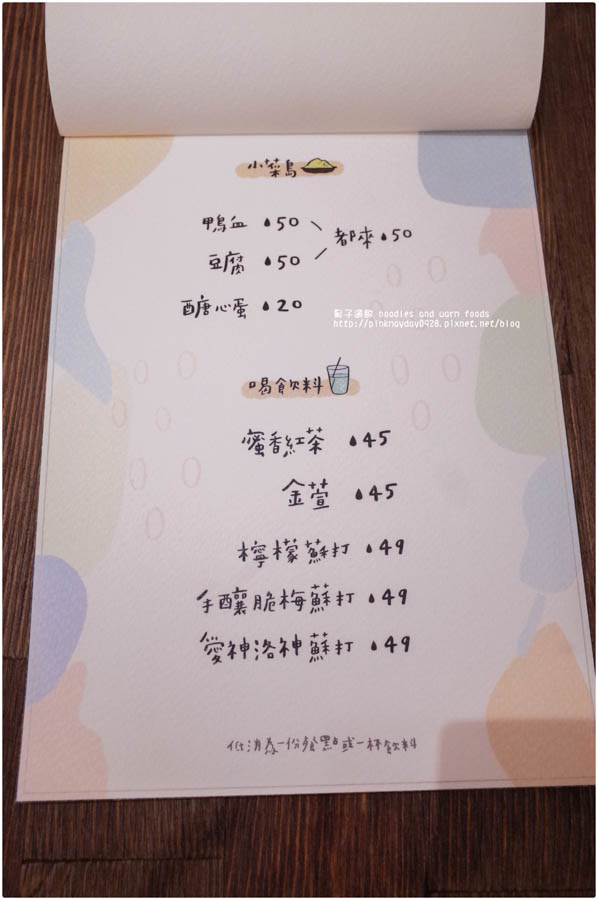 小菜島
鴨血 50
都來 50
豆腐 50
醣心蛋 20
noodles and warm foods
http://pinkmayday0928.pixnet.net/blog
喝飲料
蜜香紅茶 45
金萱 45
檸檬蘇打 49
手釀脆梅蘇打 49
愛神洛神蘇打 49
低消為一份餐點或一杯飲料